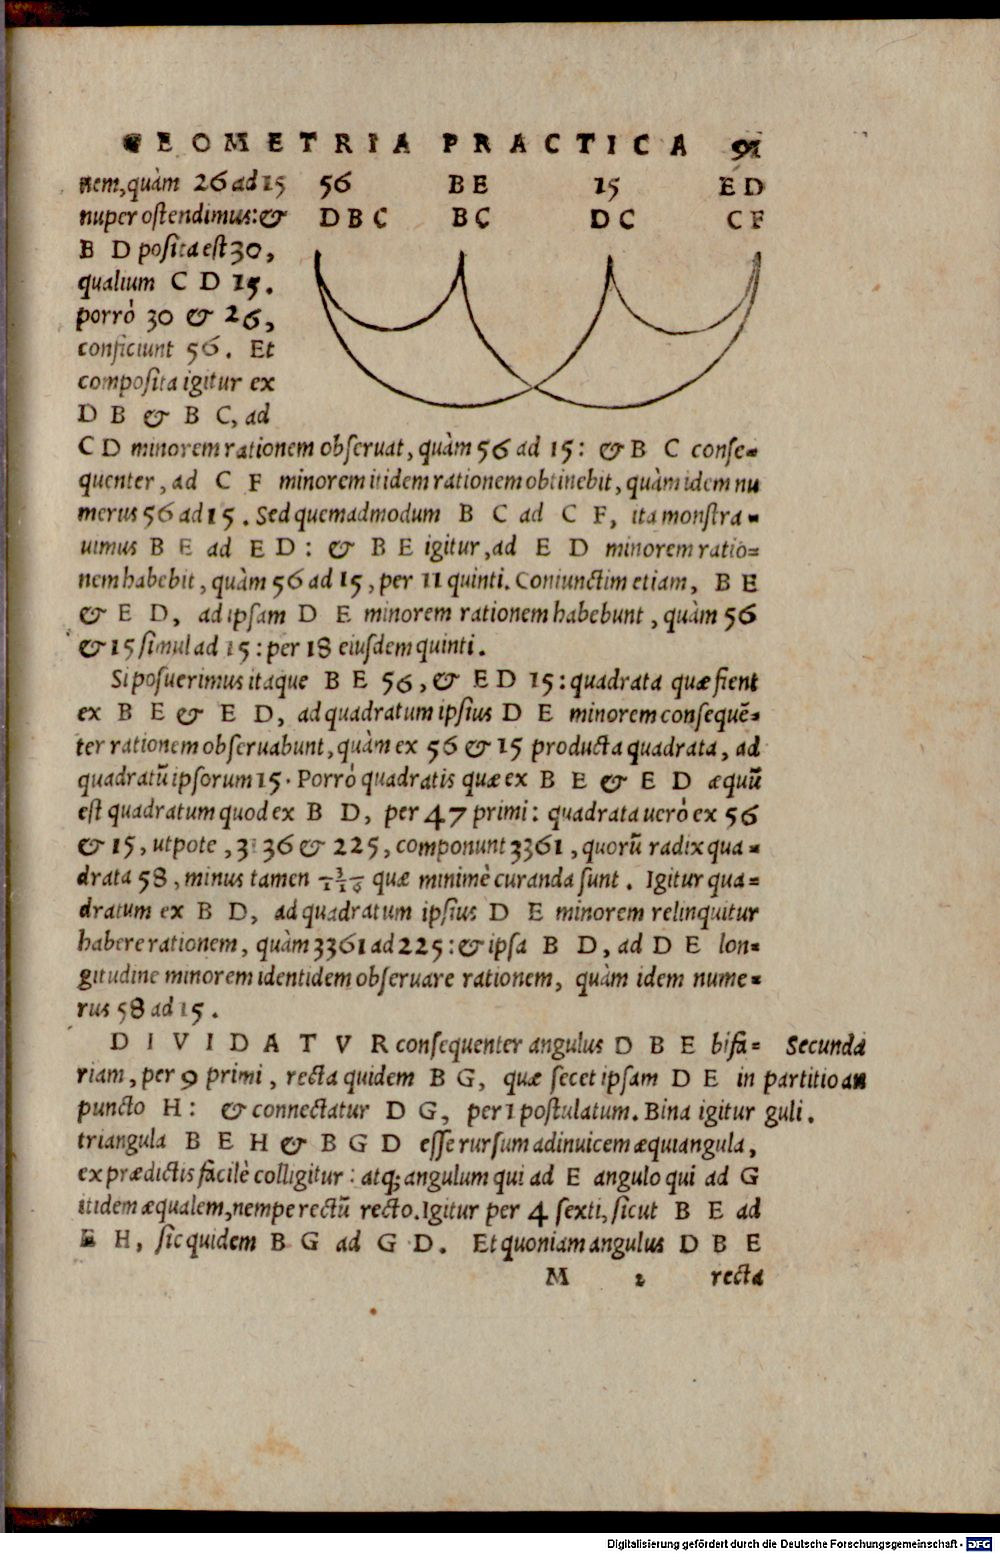 GEOMETRIA PRACTICA 91
nem, quàm 26 ad 15
nuper ostendimus: &
B D posita est 30,
qualium C D 15.
porrò 30 & 26,
conficiunt 56. Et
composita igitur ex
D B & B C, ad
56 BE 15 ED
DBC BC DC CF
C D minorem rationem obseruat, quàm 56 ad 15: & B C conse=
quenter, ad C F minorem itidem rationem obtinebit, quàm idem nu
merus 56 ad 15. Sed quemadmodum B C ad C F, ita monstra=
uimus B E ad E D: & B E igitur, ad E D minorem ratio=
nem habebit, quàm 56 ad 15, per 11 quinti. Coniunctim etiam, B E
& E D, ad ipsam D E minorem rationem habebunt, quàm 56
& 15 simul ad 15: per 18 eiusdem quinti.
Si posuerimus itaque B E 56, & E D 15: quadrata quæ fient
ex B E & E D, ad quadratum ipsius D E minorem consequē=
ter rationem obseruabunt, quàm ex 56 & 15 producta quadrata, ad
quadratū ipsorum 15. Porrò quadratis quæ ex B E & E D æquū
est quadratum quod ex B D, per 47 primi: quadrata uerò ex 56
& 15, utpote, 3136 & 225, componunt 3361, quorū radix qua=
drata 58, minus tamen 3/116 quæ minimè curanda sunt. Igitur qua=
dratum ex B D, ad quadratum ipsius D E minorem relinquitur
habere rationem, quàm 3361 ad 225: & ipsa B D, ad D E lon=
gitudine minorem identidem obseruare rationem, quàm idem nume=
rus 58 ad 15.
DIVIDATVR consequenter angulus D B E bifa=
riam, per 9 primi, recta quidem B G, quæ secet ipsam D E in
puncto H: & connectatur D G, per 1 postulatum. Bina igitur
triangula B E H & B G D esse rursum adinuicem æquiangula,
ex prædictis facilè colligitur: atq; angulum qui ad E angulo qui ad G
itidem æqualem, nempe rectū recto. Igitur per 4 sexti, sicut B E ad
E H, sic quidem B G ad G D. Et quoniam angulus D B E
Secunda
partitio an
guli.
M 2 recta
Digitalisierung gefördert durch die Deutsche Forschungsgemeinschaft - DFG